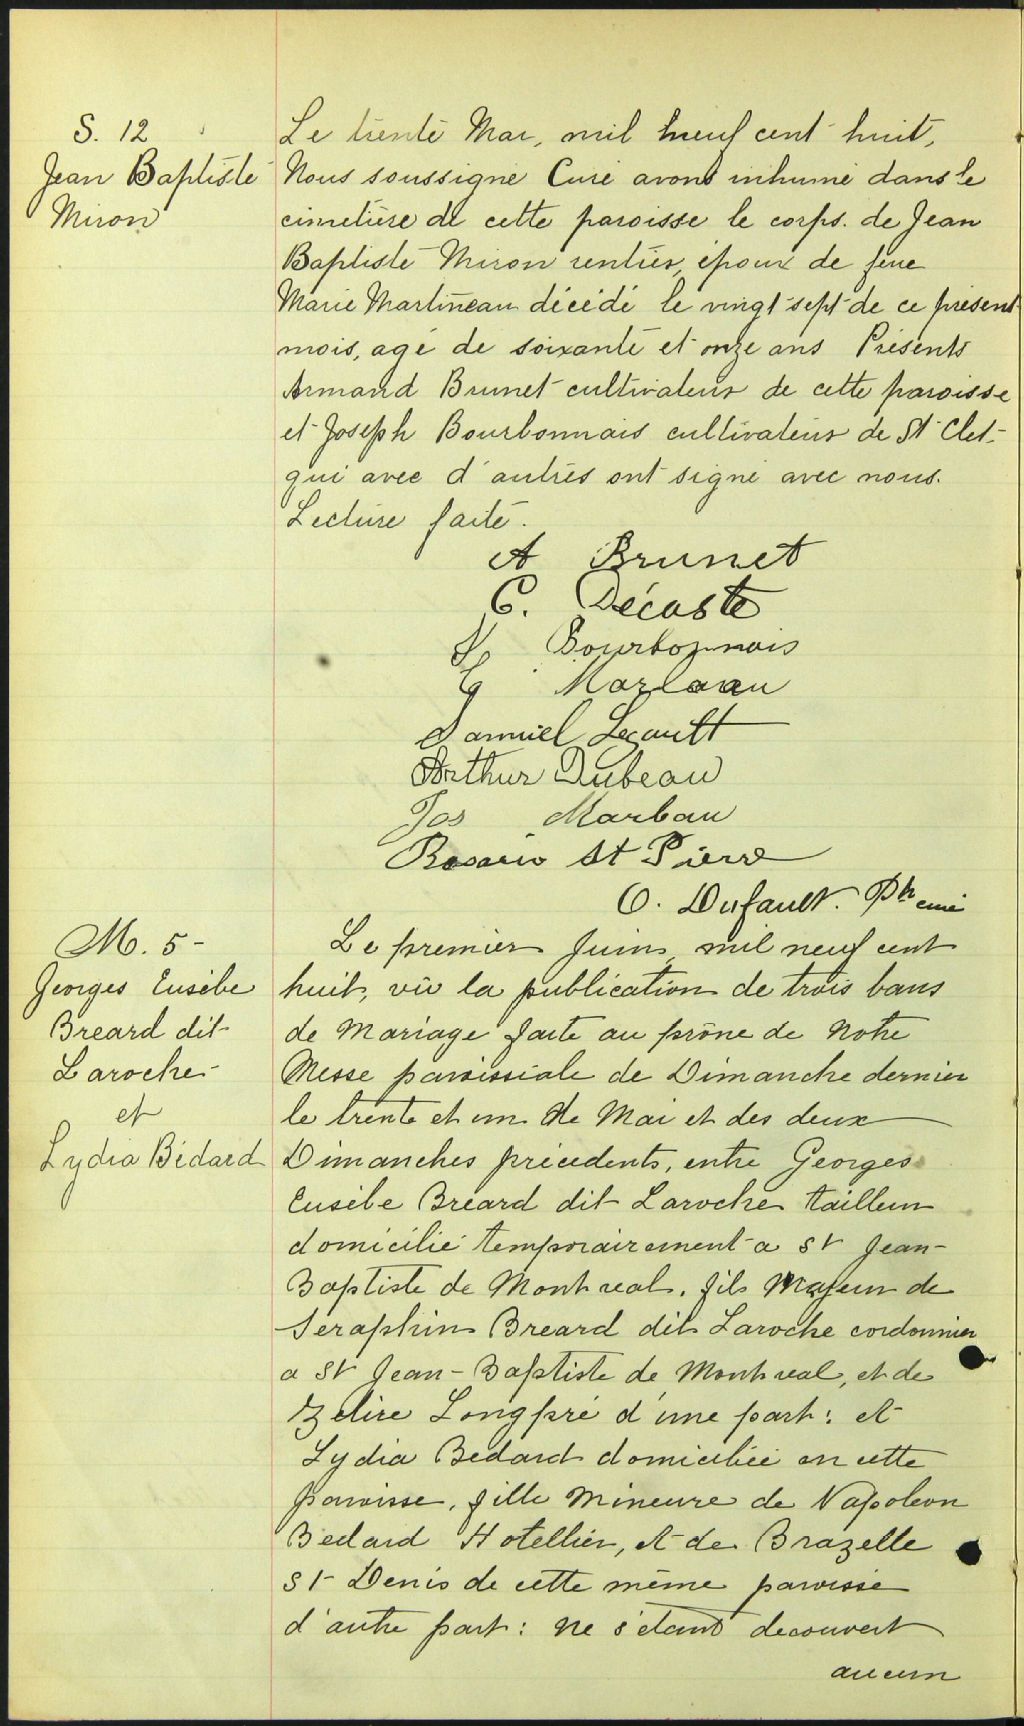 S. 12
Jean Baptiste
Miron
Le trente Mai, mil neuf cent huit,
Nous soussigné Curé avons inhumé dans le
cimetière de cette paroisse le corps. de Jean
Baptiste Miron rentier, époux de feue
Marie Martineau décédé le vingt-sept de ce présent
mois, agé de soixante et onze ans Présents
Armand Brunet cultivateur de cette paroisse
et Joseph Bourbonnais cultivateur de St Clet,
qui avec d'autres ont signé avec nous.
Lecture faite.
A Brunet
C. Décoste
Bourbonnais
Samuel Legault
Arthur Dubeau
Jos Marbau
Rosario St Pierre
O. Dufault. Ptre curé
M. 5 -
Georges Eusèbe
Breard dit
Laroche
et
Lydia Bédard
Le premier Juin, mil neuf cent
huit, vû la publication de trois bans
de Mariage faite au prône de Notre
Messe paroissiale de Dimanche dernier
le trente et un de Mai et des deux
Dimanches précedents, entre Georges
Eusèbe Breard dit Laroche tailleur
domicilié temporairement a St Jean-
Baptiste de Montreal, fils Majeur de
Seraphin Breard dit Laroche cordonnier
a St Jean-Baptiste de Montreal, et de
Zelire Longpré d'une part: et
Lydia Bedard domiciliée en cette
paroisse, fille Mineure de Napoleon
Bedard Hotellier, et de Brazelle
St Denis de cette même paroisse
d'autre part: ne s'étant decouvert
aucun